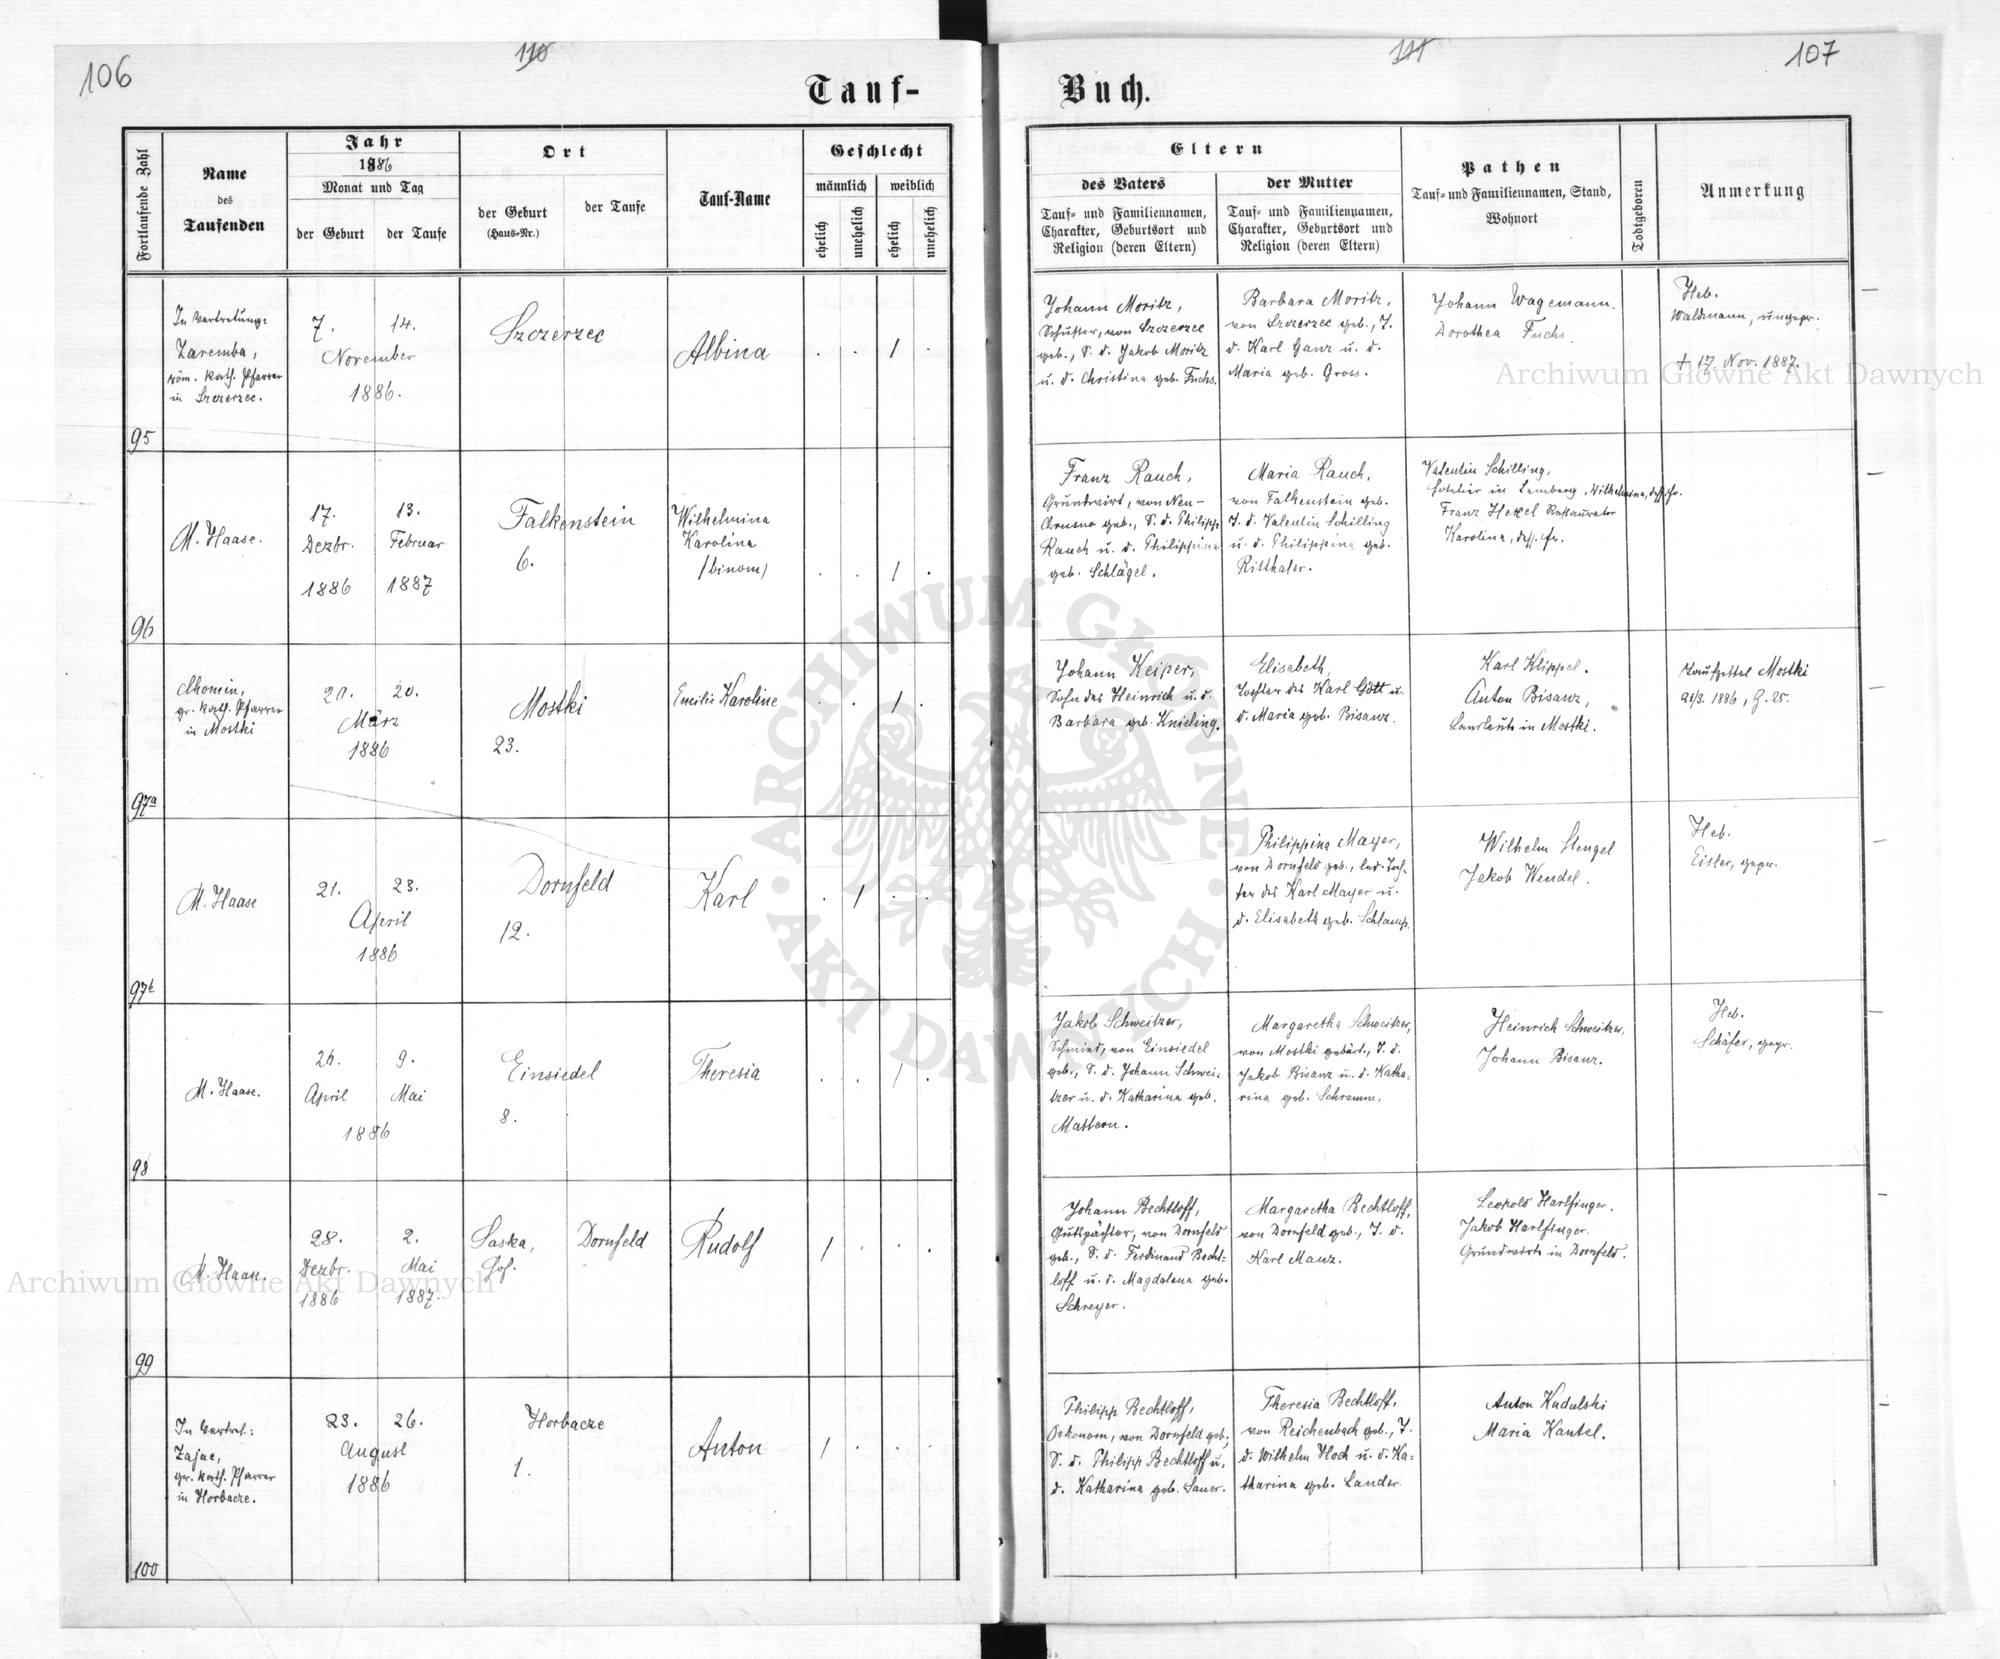 106
110
111
107
Tauf-
Buch.
Fortlaufende Zahl
Name
des
Taufenden
Jahr
1886
Monat und Tag
der Geburt
der Taufe
Ort
der Geburt
(Haus-Nr.)
der Taufe
Tauf-Name
Geschlecht
männlich
weiblich
ehelich
unehelich
ehelich
unehelich
Eltern
des Vaters
Tauf- und Familiennamen,
Charakter, Geburtsort und
Religion (deren Eltern)
der Mutter
Tauf- und Familiennamen,
Charakter, Geburtsort und
Religion (deren Eltern)
Pathen
Tauf- und Familiennamen, Stand,
Wohnort
Todtgeboren
Anmerkung
95
In Vertretung:
Zaremba,
röm. kath. Pfarrer
in Szczerzec.
7. 14.
November
1886.
Szczerzec
Albina
. . 1 .
Johann Moritz,
Schuster, von Szczerzec
geb., S. d. Jakob Moritz
u. d. Christina geb. Fuchs.
Barbara Moritz,
von Szczerzec geb., T.
d. Karl Ganz u. d.
Maria geb. Gross.
Johann Wagemann.
Dorothea Fuchs.
Heb.
Waldmann, ungepr.
† 17. Nov. 1887.
96
M. Haase.
17. 13.
Dezbr. Februar
1886 1887
Falkenstein
6.
Wilhelmina
Karolina
/binom/
. . 1 .
Franz Rauch,
Grundwirt, von Neu-
Chrusno geb., S. d. Philipp
Rauch u. d. Philippina
geb. Schlägel.
Maria Rauch,
von Falkenstein geb.
T. d. Valentin Schilling
u. d. Philippina geb.
Ritthaler.
Valentin Schilling,
Hotelier in Lemberg, Wilhelmina, dess. Fr.
Franz Hexel Restaurator
Karolina, dess. Fr.
97a
Chomin,
gr. kath. Pfarrer
in Mostki
20. 20.
März
1886
Mostki
23.
Emilie Karoline
. . 1 .
Johann Keiper,
Sohn des Heinrich u. d.
Barbara geb. Knieling.
Elisabeth,
Tochter des Karl Gött u.
d. Maria geb. Bisanz.
Karl Klippel.
Anton Bisanz,
Landleute in Mostki.
Taufzettel Mostki
21/3. 1886, Z. 25.
97b
M. Haase
21. 23.
April
1886
Dornfeld
12.
Karl
. 1 . .
Philippina Mayer,
von Dornfeld geb., led. Toch-
ter des Karl Mayer u.
d. Elisabeth geb. Schlamp.
Wilhelm Stengel
Jakob Wendel.
Heb.
Eisler, gepr.
98
M. Haase.
26. 9.
April Mai
1886
Einsiedel
8.
Theresia
. . 1 .
Jakob Schweitzer,
Schmied, von Einsiedel
geb., S. d. Johann Schwei-
tzer u. d. Katharina geb.
Mattern.
Margaretha Schweitzer,
von Mostki gebürt., T. d.
Jakob Bisanz u. d. Katha-
rina geb. Schramm.
Heinrich Schweitzer.
Johann Bisanz.
Heb.
Schäfer, gepr.
99
M. Haase.
28. 2.
Dezbr. Mai
1886 1887.
Saska,
Hof.
Dornfeld
Rudolf
1 . . .
Johann Bechtloff,
Gutspächter, von Dornfeld
geb., S. d. Ferdinand Becht-
loff u. d. Magdalena geb.
Schreyer.
Margaretha Bechtloff,
von Dornfeld geb., T. d.
Karl Manz.
Leopold Harlfinger.
Jakob Harlfinger.
Grundwirte in Dornfeld.
100
In Vertret.:
Zajac,
gr. kath. Pfarrer
in Horbacze.
23. 26.
August
1886
Horbacze
1.
Anton
1 . . .
Philipp Bechtloff,
Oekonom, von Dornfeld geb.,
S. d. Philipp Bechtloff u.
d. Katharina geb. Sauer.
Theresia Bechtloff,
von Reichenbach geb., T.
d. Wilhelm Hoch u. d. Ka-
tharina geb. Lander.
Anton Kudulski
Maria Kantel.
Archiwum Główne Akt Dawnych
Archiwum Główne Akt Dawnych
ARCHIWUM GŁÓWNE AKT DAWNYCH